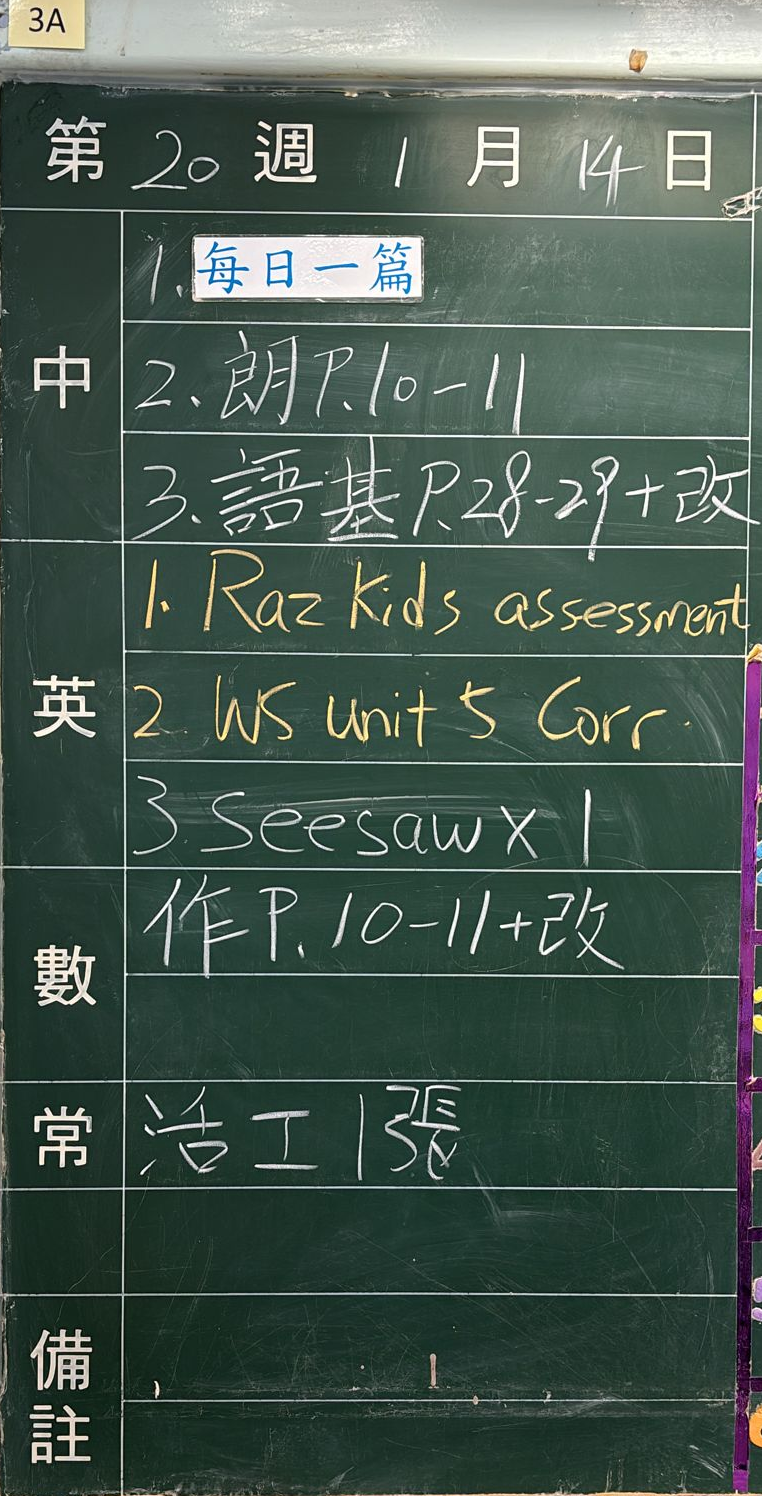 3A
第 20 週 1 月 14 日
中
1. 每日一篇
2. 朗 P.10-11
3. 語基 P.28-29+改
英
1. Raz Kids assessment
2. WS unit 5 Corr.
3. Seesaw x 1
數
作 P.10-11+改
常
活工 1張
備註